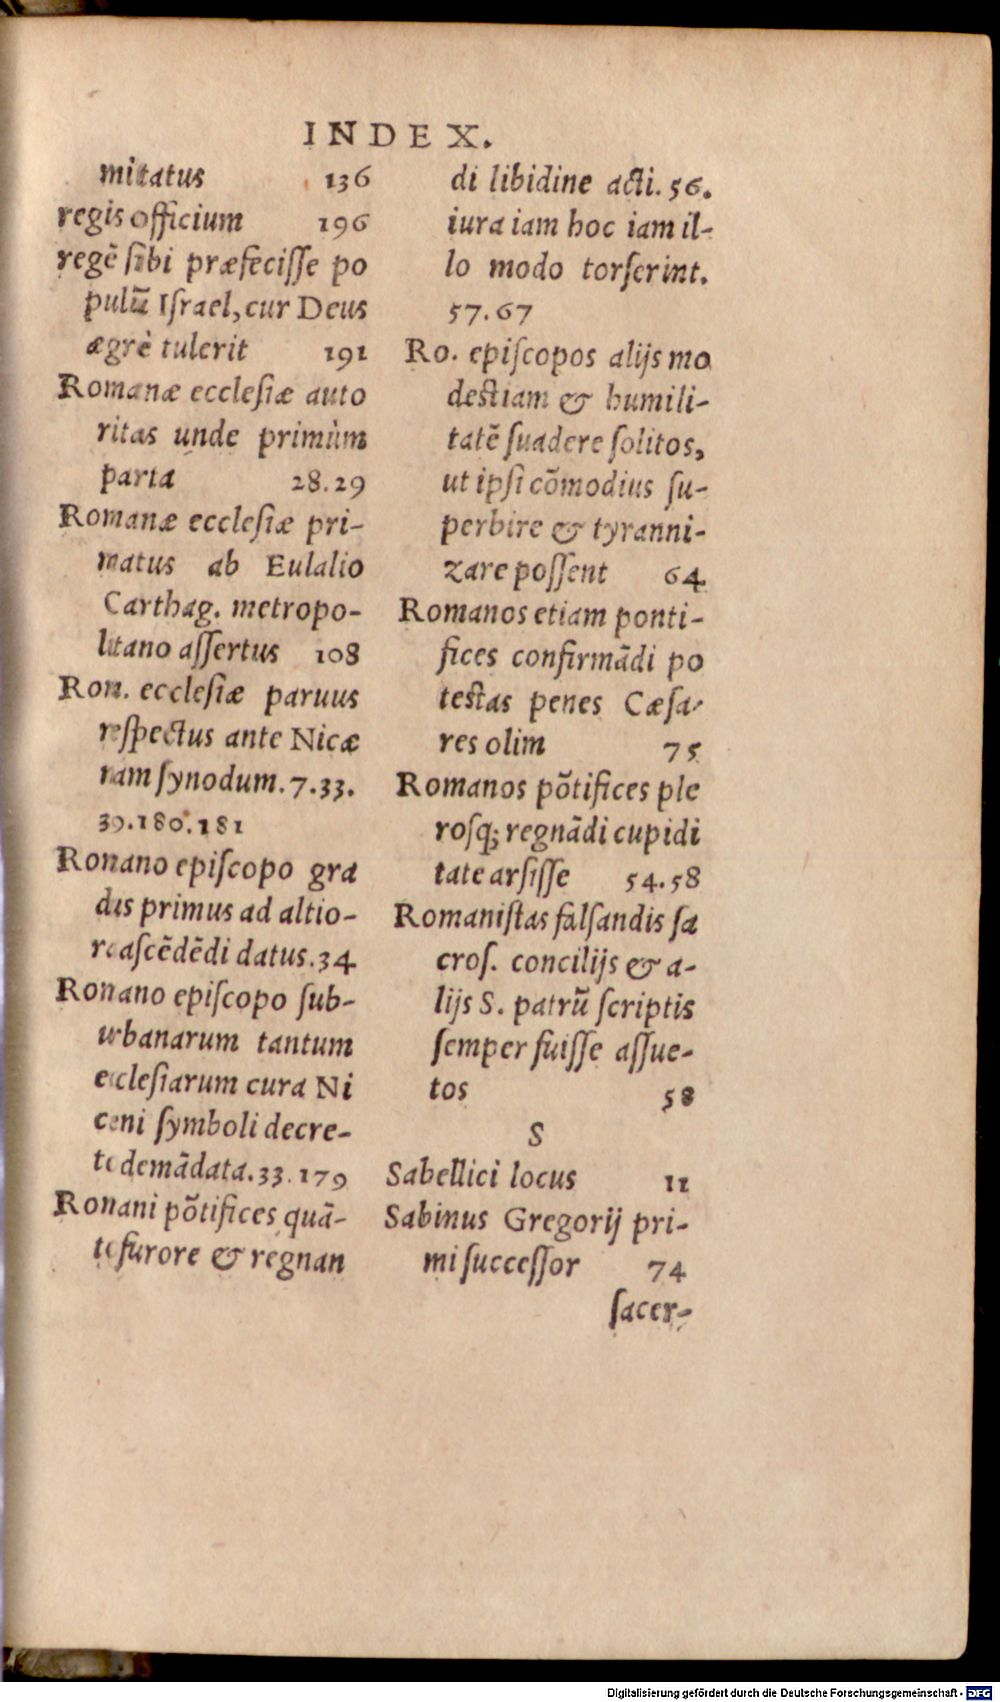 INDEX.
mitatus 136
regis officium 196
regẽ ſibi præfeciſſe po
pulũ Iſrael, cur Deus
ægrè tulerit 191
Romanæ eccleſiæ auto
ritas unde primùm
parta 28.29
Romanæ eccleſiæ pri-
matus ab Eulalio
Carthag. metropo-
litano aſſertus 108
Rom. eccleſiæ paruus
reſpectus ante Nicæ
nam ſynodum. 7.33.
39.180.181
Romano epiſcopo gra
dus primus ad altio-
ra aſcẽdẽdi datus. 34
Romano epiſcopo ſub-
urbanarum tantum
eccleſiarum cura Ni
ceni ſymboli decre-
to demãdata. 33.179
Romani põtifices quã-
to furore & regnan
di libidine acti. 56.
iura iam hoc iam il-
lo modo torſerint.
57.67
Ro. epiſcopos alijs mo
deſtiam & humili-
tatẽ ſuadere ſolitos,
ut ipſi cõmodius ſu-
perbire & tyranni-
zare poſſent 64
Romanos etiam ponti-
fices confirmãdi po
teſtas penes Cæſa-
res olim 75
Romanos põtifices ple
roſq; regnãdi cupidi
tate arſiſſe 54.58
Romaniſtas falſandis ſa
croſ. concilijs & a-
lijs S. patrũ ſcriptis
ſemper fuiſſe aſſue-
tos 58
S
Sabellici locus 11
Sabinus Gregorij pri-
mi ſucceſſor 74
ſacer-
Digitalisierung gefördert durch die Deutsche Forschungsgemeinschaft - DFG